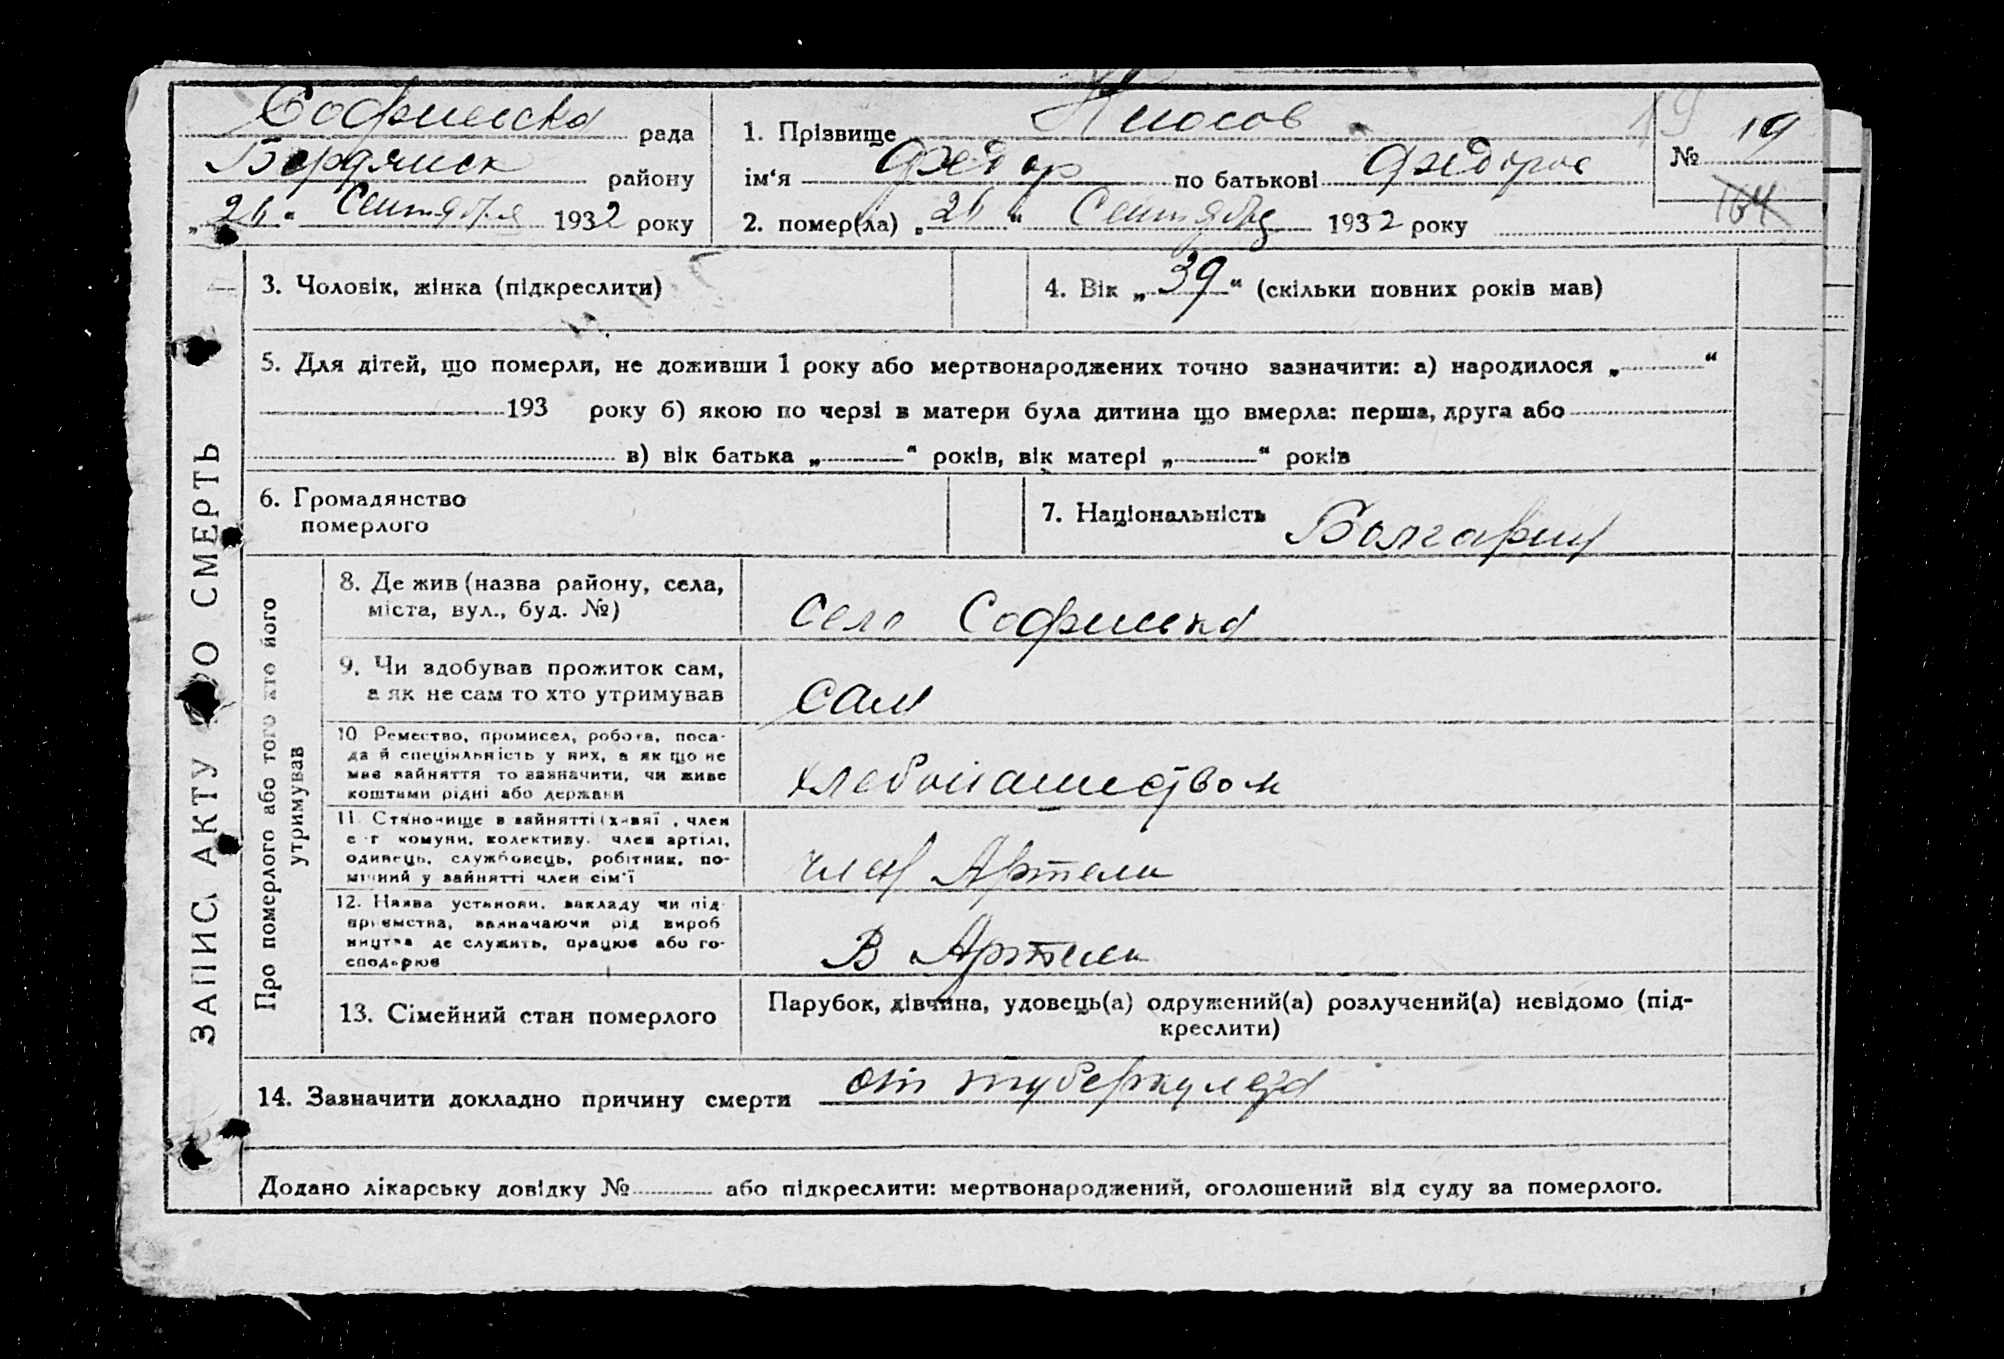 Софиевка рада
Бердянск району
„26“ Сентября 1932 року
1. Прізвище
ім'я Федор по батькові Федоров
2. помер(ла) „26“ Сентября 1932 року
№ 19
164
3. Чоловік, жінка (підкреслити)
4. Вік „39“ (скільки повних років мав)
5. Для дітей, що померли, не доживши 1 року або мертвонароджених точно зазначити: а) народилося „ “
193 року б) якою по черзі в матери була дитина що вмерла: перша, друга або
в) вік батька „ “ років, вік матері „ “ років
6. Громадянство
померлого
7. Національність Болгарин
ЗАПИС АКТУ ПРО СМЕРТЬ
Про померлого або того хто його
утримував
8. Де жив (назва району, села,
міста, вул., буд. №)
село Софиевка
9. Чи здобував прожиток сам,
а як не сам то хто утримував
сам
10 Ремество, промисел, робота, поса-
да й спеціяльність у них, а як що не
має зайняття то зазначити, чи живе
коштами рідні або держави
хлебопашеством
11. Становище в зайнятті (хазяї, член
с-г комуни, колективу, член артілі,
одинець, службовець, робітник, по-
мічний у зайнятті член сім'ї
член Артели
12. Назва установи, закладу чи під-
приємства, зазначаючи рід вироб
ництва де служить, працює або го-
сподарює
В Артели
13. Сімейний стан померлого
Парубок, дівчина, удовець(а) одружений(а) розлучений(а) невідомо (під-
креслити)
14. Зазначити докладно причину смерти от туберкулеза
Додано лікарську довідку № або підкреслити: мертвонароджений, оголошений від суду за померлого.